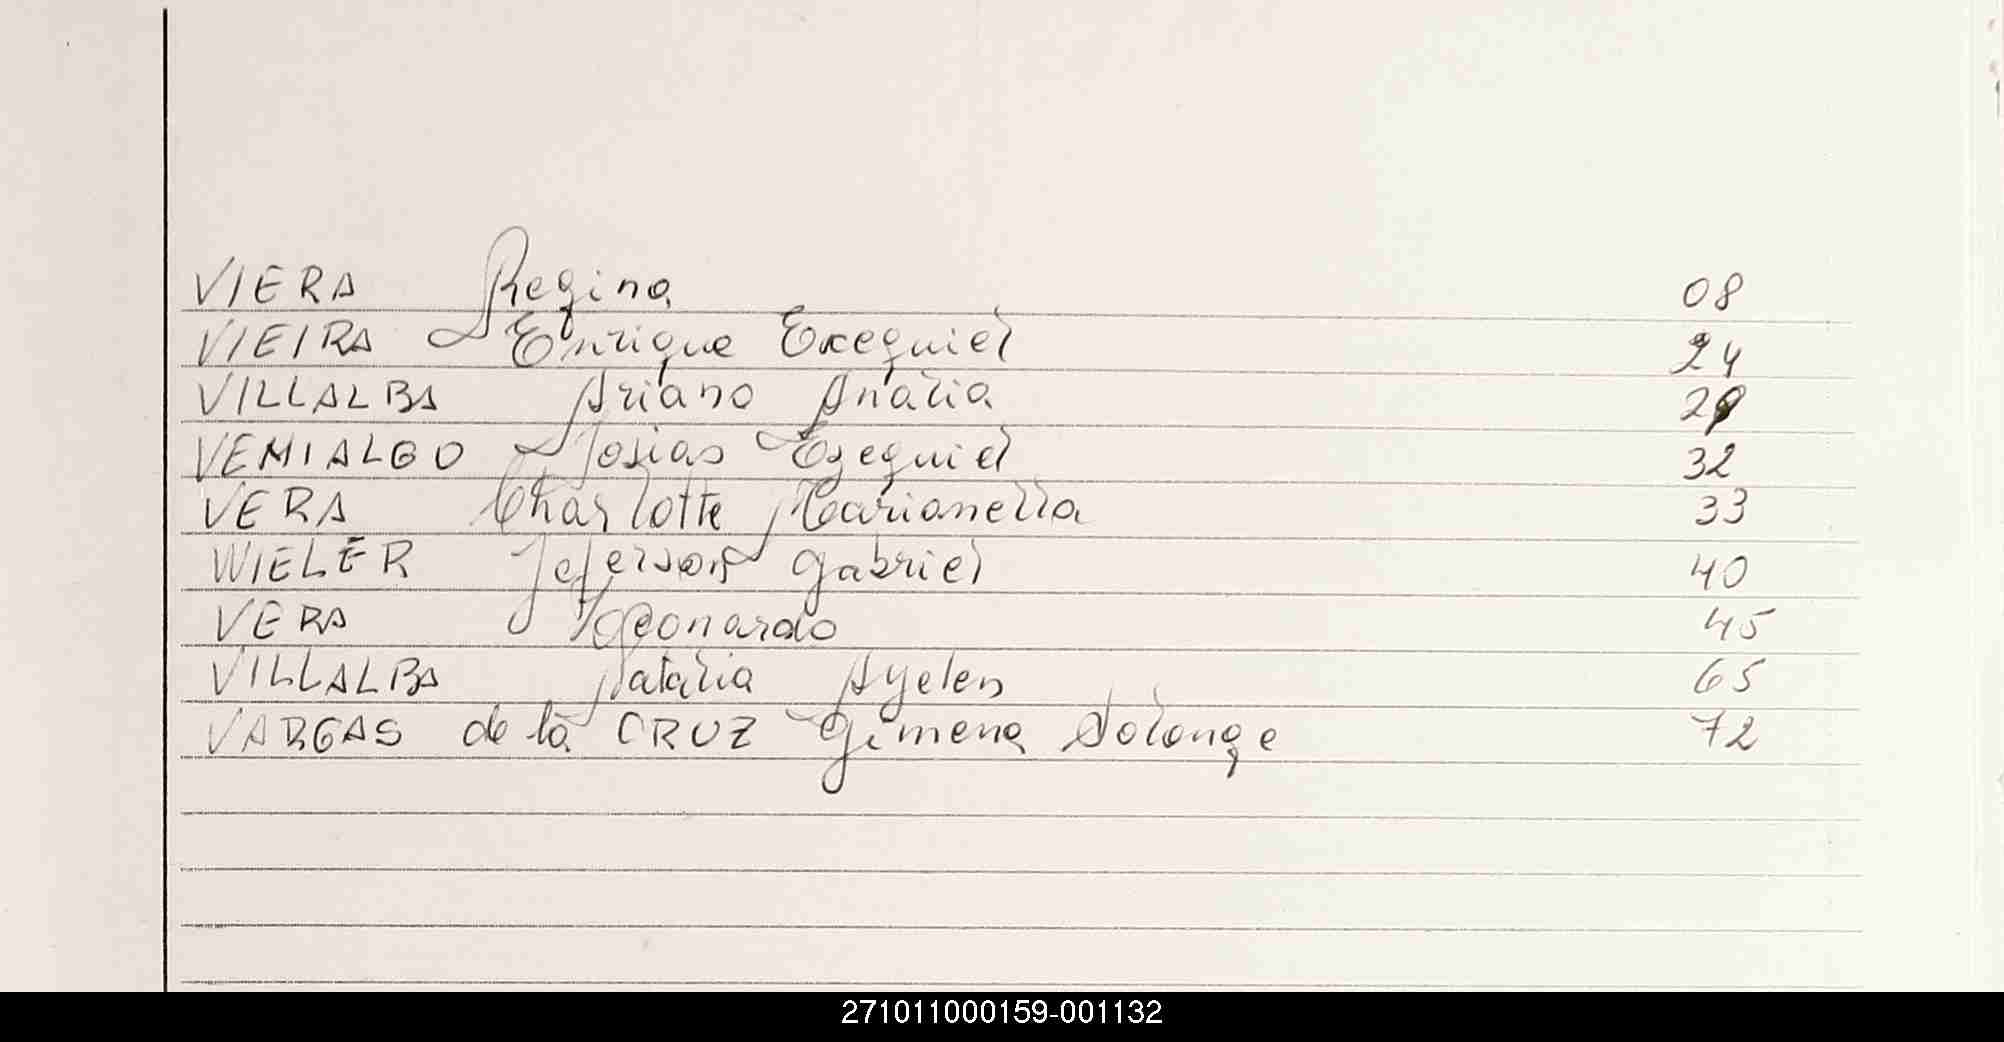 VIERA Regina 08
VIEIRA Enrique Exequiel 24
VILLALBA Ariano Analia 29
VEMIALGO Josias Ezequiel 32
VERA Charlotte Marianella 33
WIELER Jeferson Gabriel 40
VERA Leonardo 45
VILLALBA Natalia Ayelen 65
VARGAS de la CRUZ Gimena Solange 72
271011000159-001132